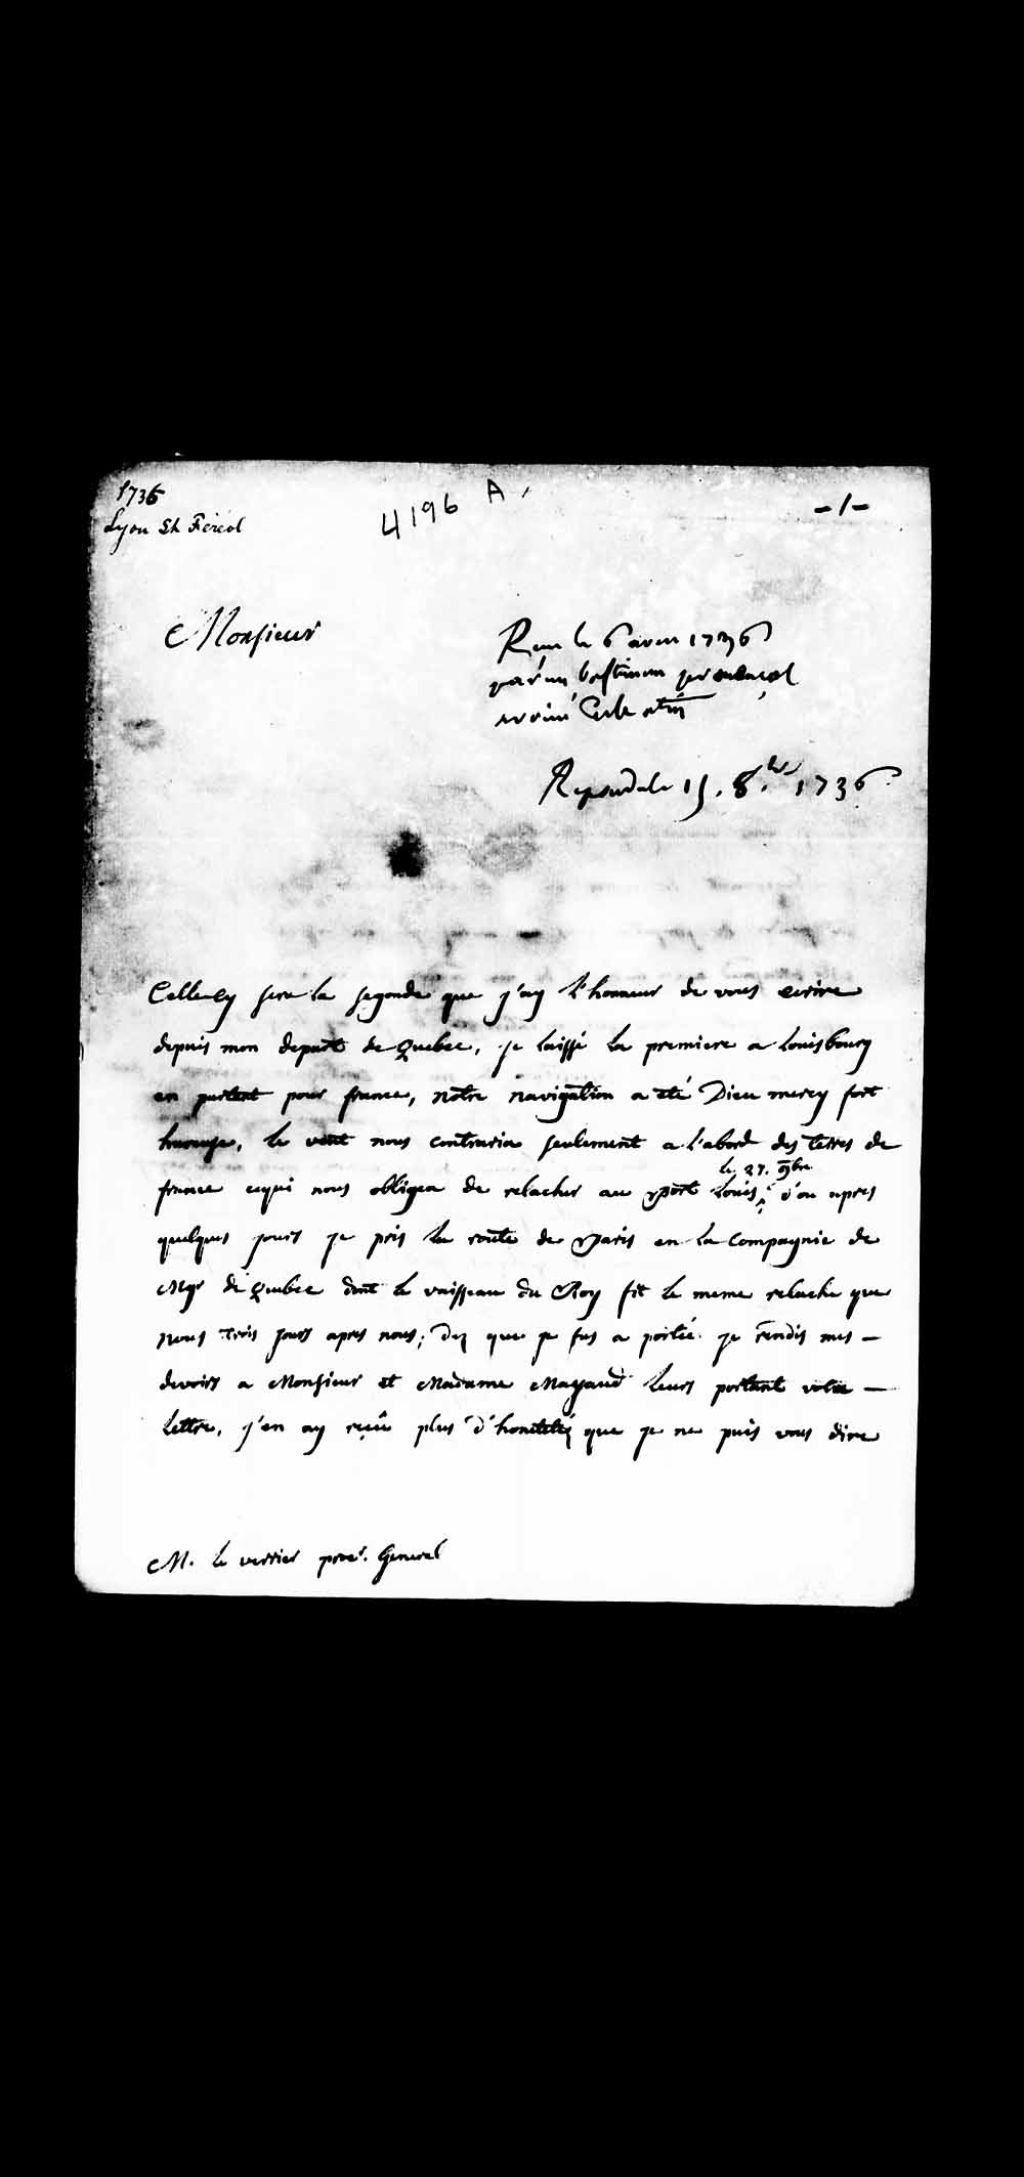 1736
Lyon St Féréol
4196 A
-1-
Monsieur
Receu le 6 aoust 1736
par un bastiment provençal
arrivé
Repondu le 15. 8.bre 1736
Celle cy sera la segonde que j'ay l'honneur de vous ecrire
depuis mon depart de Quebec, je laissé la premiere a Louisbourg
en partant pour france, notre navigation a été Dieu mercy fort
heureuse, le vent nous contraria seulement a l'abord des terres de
le 27. 9bre
france cequi nous obligea de relacher au port Louis, d'ou apres
quelques jours je pris la route de Paris en la compagnie de
Mgr de Quebec dont le vaisseau du Roy fit le meme relache que
nous trois jours apres nous; Dez que je fus a portée je rendis mes —
devoirs a Monsieur et Madame Mayaud leurs portant votre —
Lettre, j'en ay reçû plus d'honêtetéz que je ne puis vous dire
M. le verrier procr. General